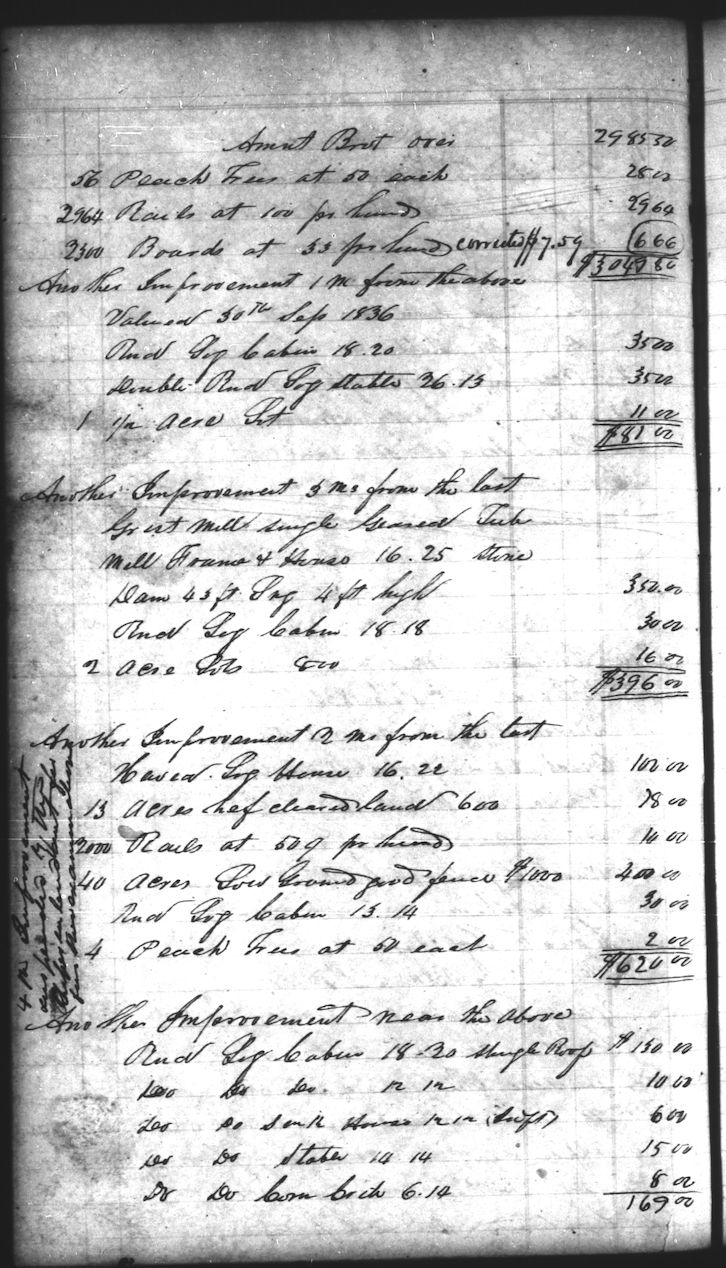 Amnt Brot over 2985 30
56 Peach Trees at 50 each 28 00
2964 Rails at 100 pr hund 29 64
2300 Boards at 33 pr hund corrected $7.59 6 66
$3049 80
Another Improvement 1 M from the above
Valued 30th Sep 1836
Rnd Log Cabin 18.20 35 00
Double Rnd Log Stable 26.13 35 00
1 1/2 Acre Lot 11 00
$81 00
Another Improvement 3 Ms from the last
Grist Mill single Geared Tub
Mill Frame & House 16.25 stone
Dam 43 ft Lng 4 ft high 350.00
Rnd Log Cabin 18.18 30 00
2 Acre Lots 800 16 00
$396 00
Another Improvement 2 Ms from the last
Hewed Log House 16.22 100 00
13 Acres hef cleared land 600 78 00
2000 Rails at 50 pr hund 10 00
40 Acres Low Ground good fence $1000 400 00
Rnd Log Cabin 13.14 30 00
4 Peach Trees at 50 each 2 00
$620 00
4th Improvement
Another Improvement near the above
Rnd Log Cabin 18.20 Shingle Roof $130 00
Do Do Do. 12 12 10 00
Do Do Smk House 12 12 6 00
Do Do Stable 14 14 15 00
Do Do Corn Crib 6.14 8 00
169 00